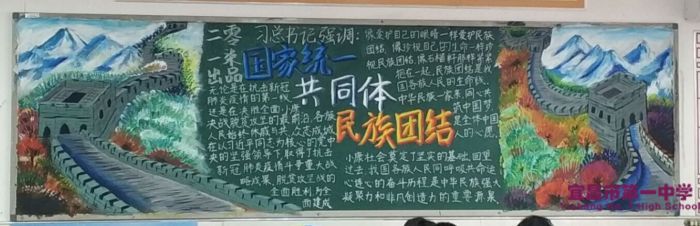 二零一柒出品
习总书记强调:
像爱护自己的眼睛一样爱护民族
团结,像珍视自己的生命一样珍
视民族团结,像石榴籽那样紧紧
抱在一起,民族团结是我
国各族人民的生命线,
中华民族一家亲,同心共
筑中国梦,
是全体中国
人的心愿.
国家统一
共同体
民族团结
无论是在抗击新冠
肺炎疫情的第一线
还是在决胜全面小康
决战脱贫攻坚的最前沿,各族
人民始终休戚与共,众志成城
在以习近平同志为核心的党中
央的坚强领导下取得了抗击
新冠肺炎疫情斗争重大战
略成果,脱贫攻坚战的
全面胜利为全
面建成
小康社会奠定了坚实的基础.回望
过去,我国各族人民同呼吸共命运
心连心的奋斗历程是中华民族强大
凝聚力和非凡创造力的重要源泉
宜昌市第一中学
Yichang No.1 High School